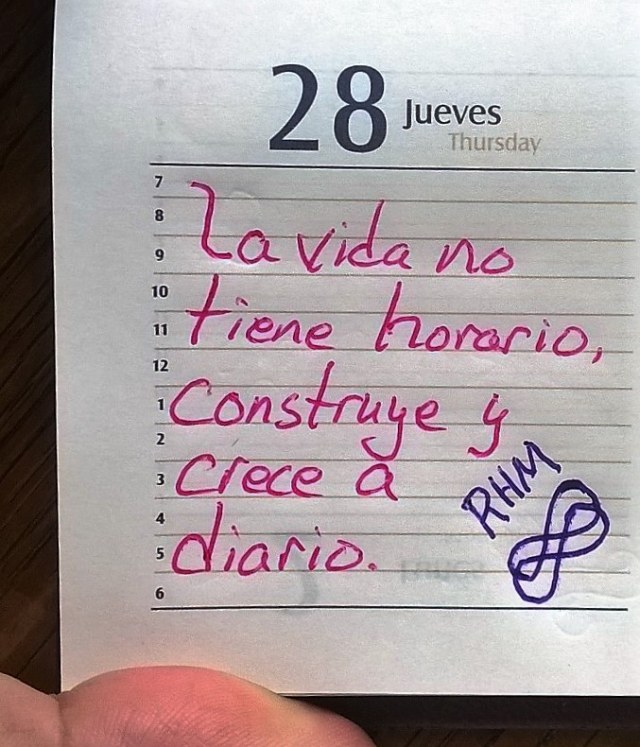 28 Jueves
Thursday
7
8
La vida no
9
10
tiene horario,
11
12
Construye y
1
2
crece a
3
RHM
4
diario.
5
6